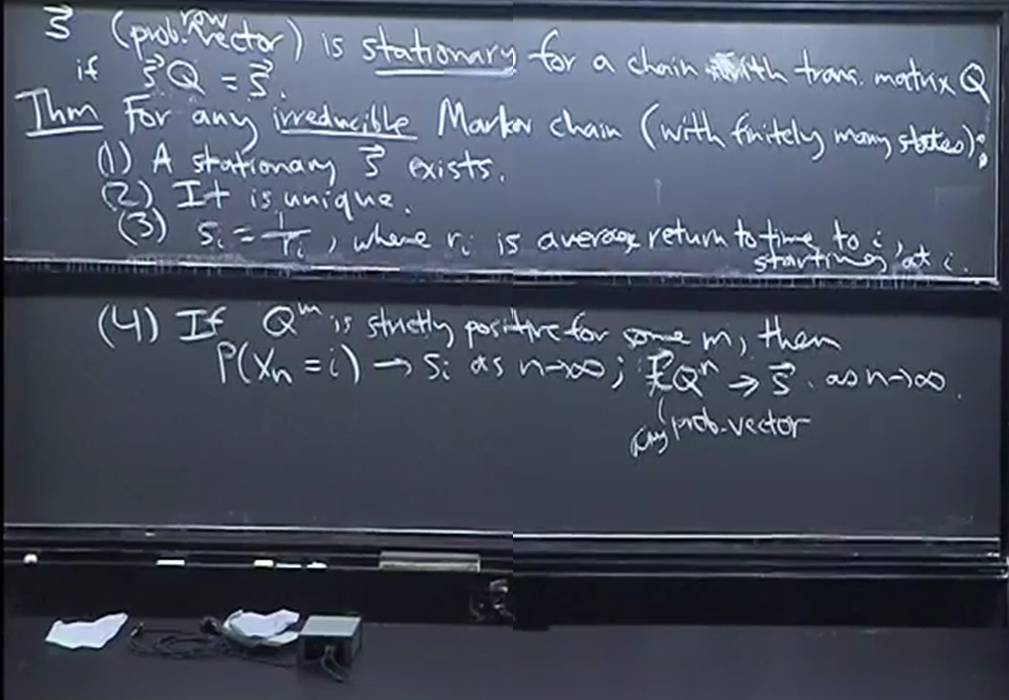 s⃗ (prob. row vector) is stationary for a chain with trans. matrix Q
if s⃗Q = s⃗.
Thm For any irreducible Markov chain (with finitely many states):
(1) A stationary s⃗ exists.
(2) It is unique.
(3) sᵢ = 1/rᵢ, where rᵢ is average return to time to i,
starting at i.
(4) If Qᵐ is strictly positive for some m, then
P(Xₙ = i) → sᵢ as n→∞; t⃗Qⁿ → s⃗ as n→∞.
any prob. vector